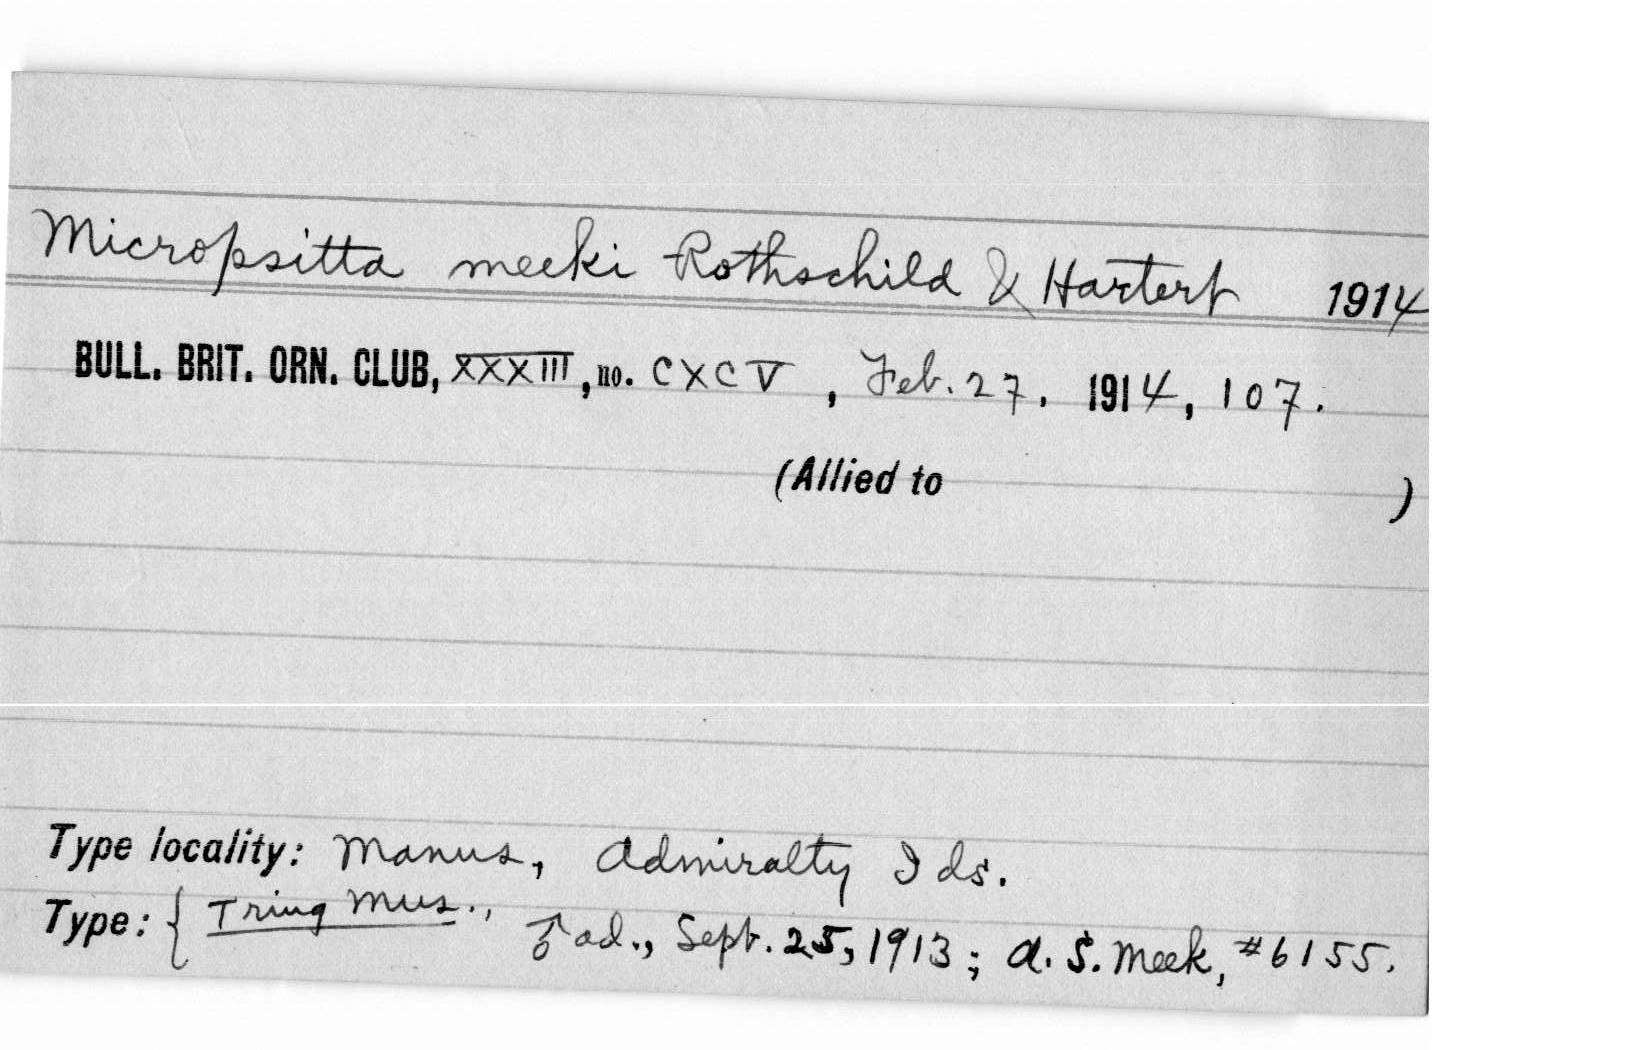 Micropsitta meeki Rothschild & Hartert 1914
BULL. BRIT. ORN. CLUB, XXXIII, no. CXCV, Feb. 27. 1914, 107.
(Allied to )
Type locality: Manus, Admiralty Ids.
Type: { Tring Mus., ♂ ad., Sept. 25, 1913; A. S. Meek, #6155.